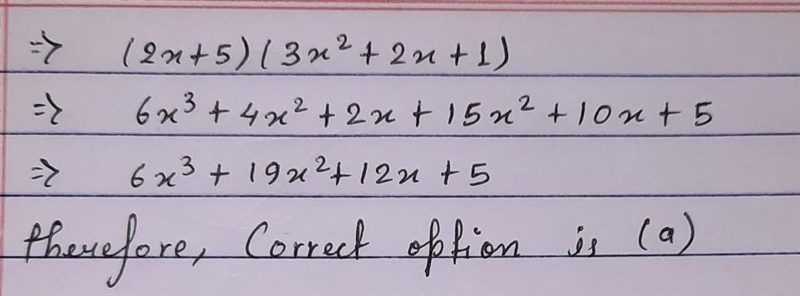 => (2x+5)(3x²+2x+1)
=> 6x³+4x²+2x+15x²+10x+5
=> 6x³+19x²+12x+5
therefore, Correct option is (a)